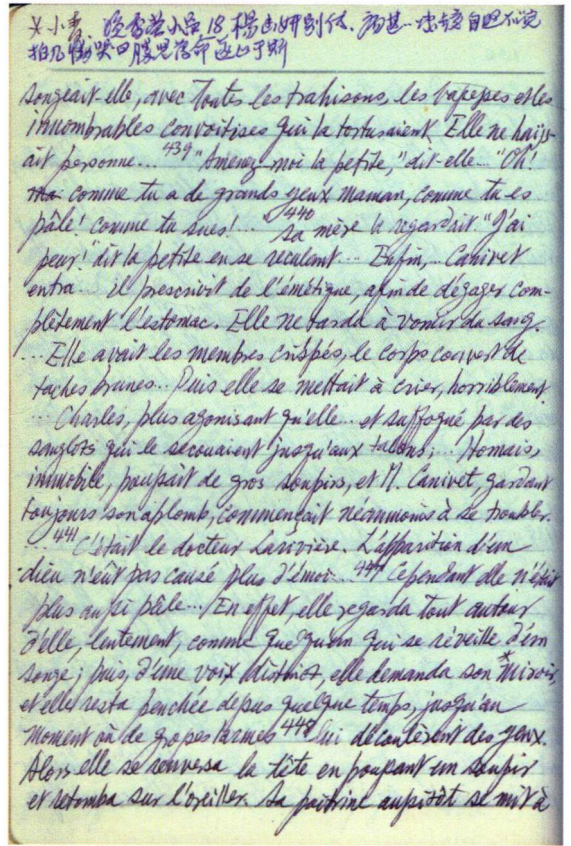 songeait-elle, avec toutes les trahisons, les bassesses et les
innombrables convoitises qui la torturaient Elle ne haïss-
ait personne... 439 "Amenez-moi la petite," dit-elle... "Oh!
comme tu a de grands yeux maman, comme tu es
pâle! comme tu sues!..." 440 Sa mère la regardait. "J'ai
peur!" dit la petite en se reculant... Enfin,... Canivet
entra... il prescrivit de l'émétique, afin de dégager com-
plètement l'estomac. Elle ne tarda à vomir du sang.
... Elle avait les membres crispés, le corps couvert de
taches brunes... Puis elle se mettait à crier, horriblement
... Charles, plus agonisant qu'elle... et suffoqué par des
sanglots qui le secouaient jusqu'aux talons;... Homais,
immobile, poussait de gros soupirs, et M. Canivet, gardant
toujours son aplomb, commençait néanmoins à se troubler.
... 441 C'était le docteur Larivière. L'apparition d'un
dieu n'eût pas causé plus d'émoi... 447 Cependant elle n'était
plus aussi pâle... En effet, elle regarda tout autour
d'elle, lentement, comme quelqu'un qui se réveille d'un
songe; puis, d'une voix distincte, elle demanda son miroir,
et elle resta penchée depuis quelque temps, jusqu'au
moment où de grosses larmes 448 lui découlèrent des yeux.
Alors elle se renversa la tête en poussant un soupir
et retomba sur l'oreiller. Sa poitrine aussitôt se mit à